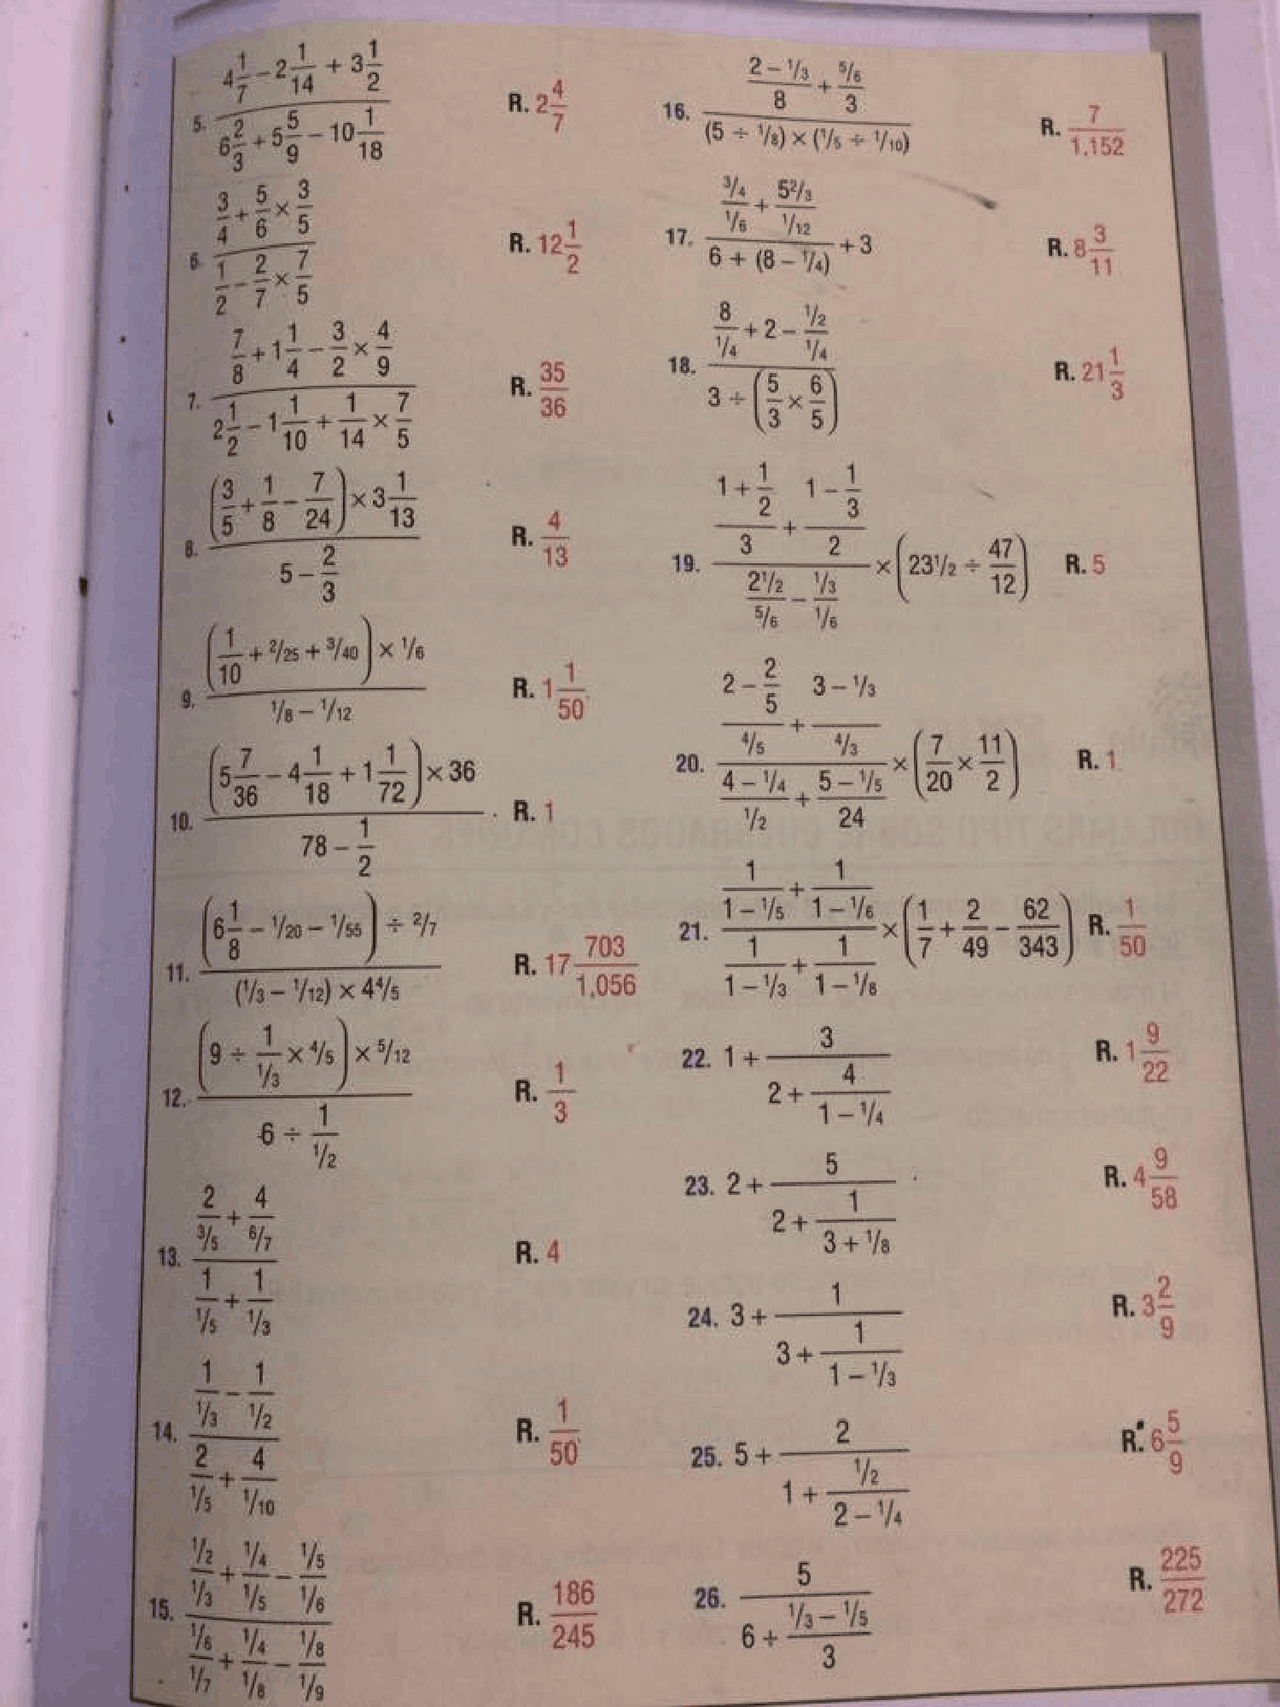 5. (4 1/7 − 2 1/14 + 3 1/2) / (6 2/3 + 5 5/9 − 10 1/18) R. 2 4/7
6. (3/4 + 5/6 × 3/5) / (1/2 − 2/7 × 7/5) R. 12 1/2
7. (7/8 + 1 1/4 − 3/2 × 4/9) / (2 1/2 − 1 1/10 + 1/14 × 7/5) R. 35/36
8. ((3/5 + 1/8 − 7/24) × 3 1/13) / (5 − 2/3) R. 4/13
9. ((1/10 + 2/25 + 3/40) × 1/6) / (1/8 − 1/12) R. 1 1/50
10. ((5 7/36 − 4 1/18 + 1 1/72) × 36) / (78 − 1/2) R. 1
11. ((6 1/8 − 1/20 − 1/55) ÷ 2/7) / ((1/3 − 1/12) × 4 4/5) R. 17 703/1,056
12. ((9 ÷ 1/(1/3) × 4/5) × 5/12) / (6 ÷ 1/(1/2)) R. 1/3
13. (2/(3/5) + 4/(6/7)) / (1/(1/5) + 1/(1/3)) R. 4
14. (1/(1/3) − 1/(1/2)) / (2/(1/5) + 4/(1/10)) R. 1/50
15. ((1/2)/(1/3) + (1/4)/(1/5) − (1/5)/(1/6)) / ((1/6)/(1/7) + (1/4)/(1/8) − (1/8)/(1/9)) R. 186/245
16. ((2 − 1/3)/8 + (5/6)/3) / ((5 ÷ 1/8) × (1/5 ÷ 1/10)) R. 7/1,152
17. ((3/4)/(1/6) + (5 2/3)/(1/12)) / (6 + (8 − 1/4)) + 3 R. 8 3/11
18. (8/(1/4) + 2 − (1/2)/(1/4)) / (3 ÷ (5/3 × 6/5)) R. 21 1/3
19. ((1 + 1/2)/3 + (1 − 1/3)/2) / ((2 1/2)/(5/6) − (1/3)/(1/6)) × (23 1/2 ÷ 47/12) R. 5
20. ((2 − 2/5)/(4/5) + (3 − 1/3)/(4/3)) / ((4 − 1/4)/(1/2) + (5 − 1/5)/24) × (7/20 × 11/2) R. 1
21. (1/(1 − 1/5) + 1/(1 − 1/6)) / (1/(1 − 1/3) + 1/(1 − 1/8)) × (1/7 + 2/49 − 62/343) R. 1/50
22. 1 + 3/(2 + 4/(1 − 1/4)) R. 1 9/22
23. 2 + 5/(2 + 1/(3 + 1/8)) R. 4 9/58
24. 3 + 1/(3 + 1/(1 − 1/3)) R. 3 2/9
25. 5 + 2/(1 + (1/2)/(2 − 1/4)) R. 6 5/9
26. 5/(6 + (1/3 − 1/5)/3) R. 225/272